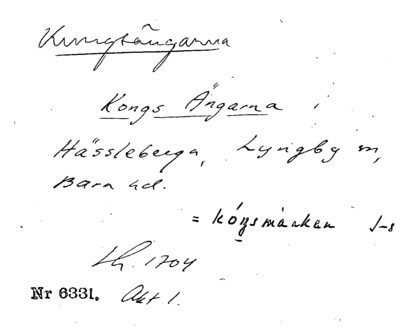 Kungsängarna
Kongs Ängarna i
Hässleberga, Lyngby sn,
Bara hd.
= kóngsmarken J-s
Lh. 1704
Nr 6331. Akt 1.